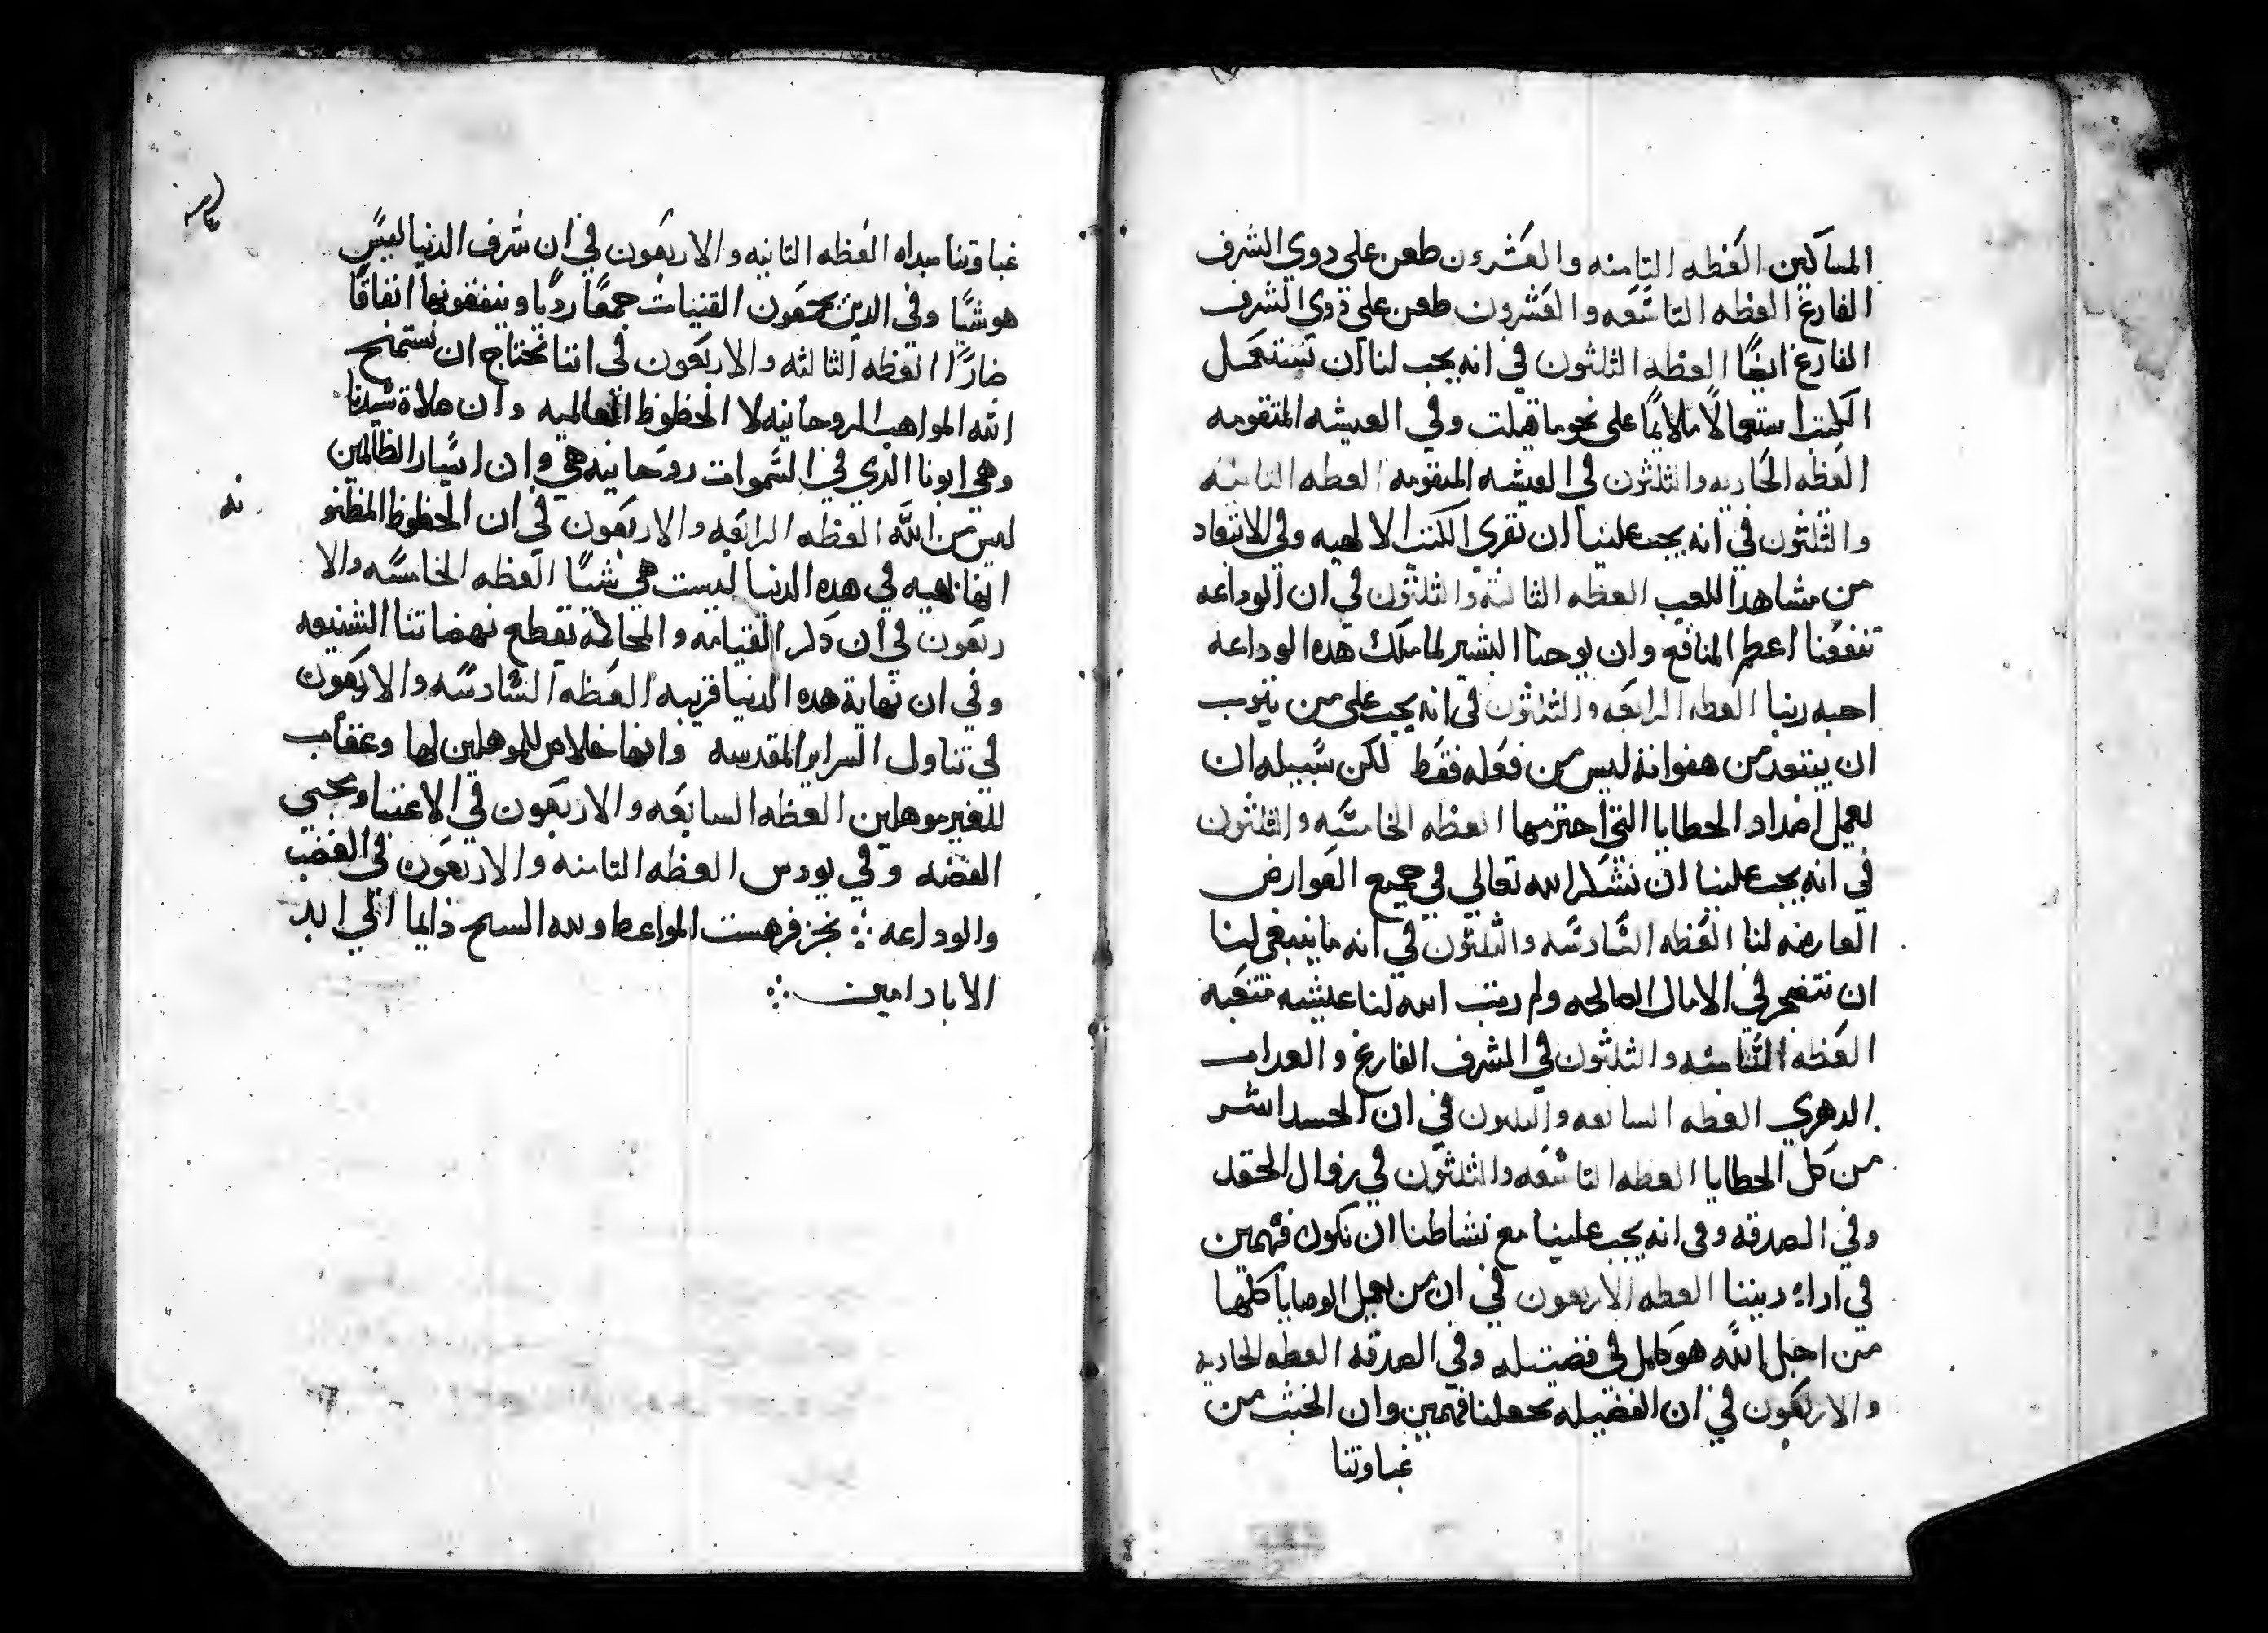 المساكين العظه الثامنه والعشرون طعن علي دوي الشرف
الفارغ العظه التاسعه والعشرون طعن علي دوي الشرف
الفارغ ايضًا العظه الثلثون في انه يجب لنا ان نستعمل
الكتب استعمالًا ملايمًا علي نحو ما قيلت وفي العيشه المتقومه
العظه الحاديه والثلثون في العيشه المتقومه العظه الثانيه
والثلثون في انه يجب علينا ان نقري الكتب الالهيه وفي الابتعاد
من مشاهد اللعب العظه الثالثه والثلثون في ان الوداعه
تنفعنا اعظم المنافع وان يوحنا البشير لما ملك هده الوداعه
احبه ربنا العظه الرابعه والثلثون في انه يجب علي من يتوب
ان يبتعد من هفواته ليس من فعله فقط لكن سبيله ان
يعمل اضداد الخطايا التي اجترمها العظه الخامسه والثلثون
في انه يجب علينا ان نشكر الله تعالي في جميع العوارض
العارضه لنا العظه السادسه والثلثون في انه ما ينبغي لنا
ان نتضجر في الامال الصالحه ولم رتب الله لنا عيشه متعبه
العظه الثامنه والثلثون في الشرف الفارغ والعداب
الدهري العظه السابعه والثلثون في ان الحسد اشر
من كل الخطايا العظه التاسعه والثلثون في زوال الحقد
وفي الصدقه وفي انه يجب علينا مع نشاطنا ان نكون فهمين
في اراء ديننا العظه الاربعون في ان من يعمل الوصايا كلها
من اجل الله هو كامل في فضيله وفي الصدقه العظه الحاديه
والاربعون في ان الفضيله تجعلنا فهمين وان الخبث من
غباوتنا
غباوتنا مبداه العظه الثانيه والاربعون في ان شرف الدنيا ليس
هو شيًا وفي الدين يجمعون القنيات جمعًا رديًا وينفقونها انفاقًا
ضارًا العظه الثالثه والاربعون في اننا نحتاج ان نستمنح
الله المواهب الروحانيه لا الحظوظ العالميه وان صلاة سيدنا
وهي ابونا الدي في السموات روحانيه هي وان ايسار الظالمين
ليس من الله العظه الرابعه والاربعون في ان الحظوظ المظنو
نه
انها بهيه في هده الدنيا ليست هي شيًا العظه الخامسه والا
ربعون في ان دكر القيامه والمحاكمة تقطع نهضاتنا الشنيعه
وفي ان نهاية هده الدنيا قريبه العظه السادسه والاربعون
في تناول السراير المقدسه وانها خلاص للموهلين لها وعقاب
للغير موهلين العظه السابعه والاربعون في الاغنيا ومحبي
الفضه وفي يودس العظه الثامنه والاربعون في الغضب
والوداعه نجز فهرست المواعظ ولله السبح دايما الي ابد
الاباد امين